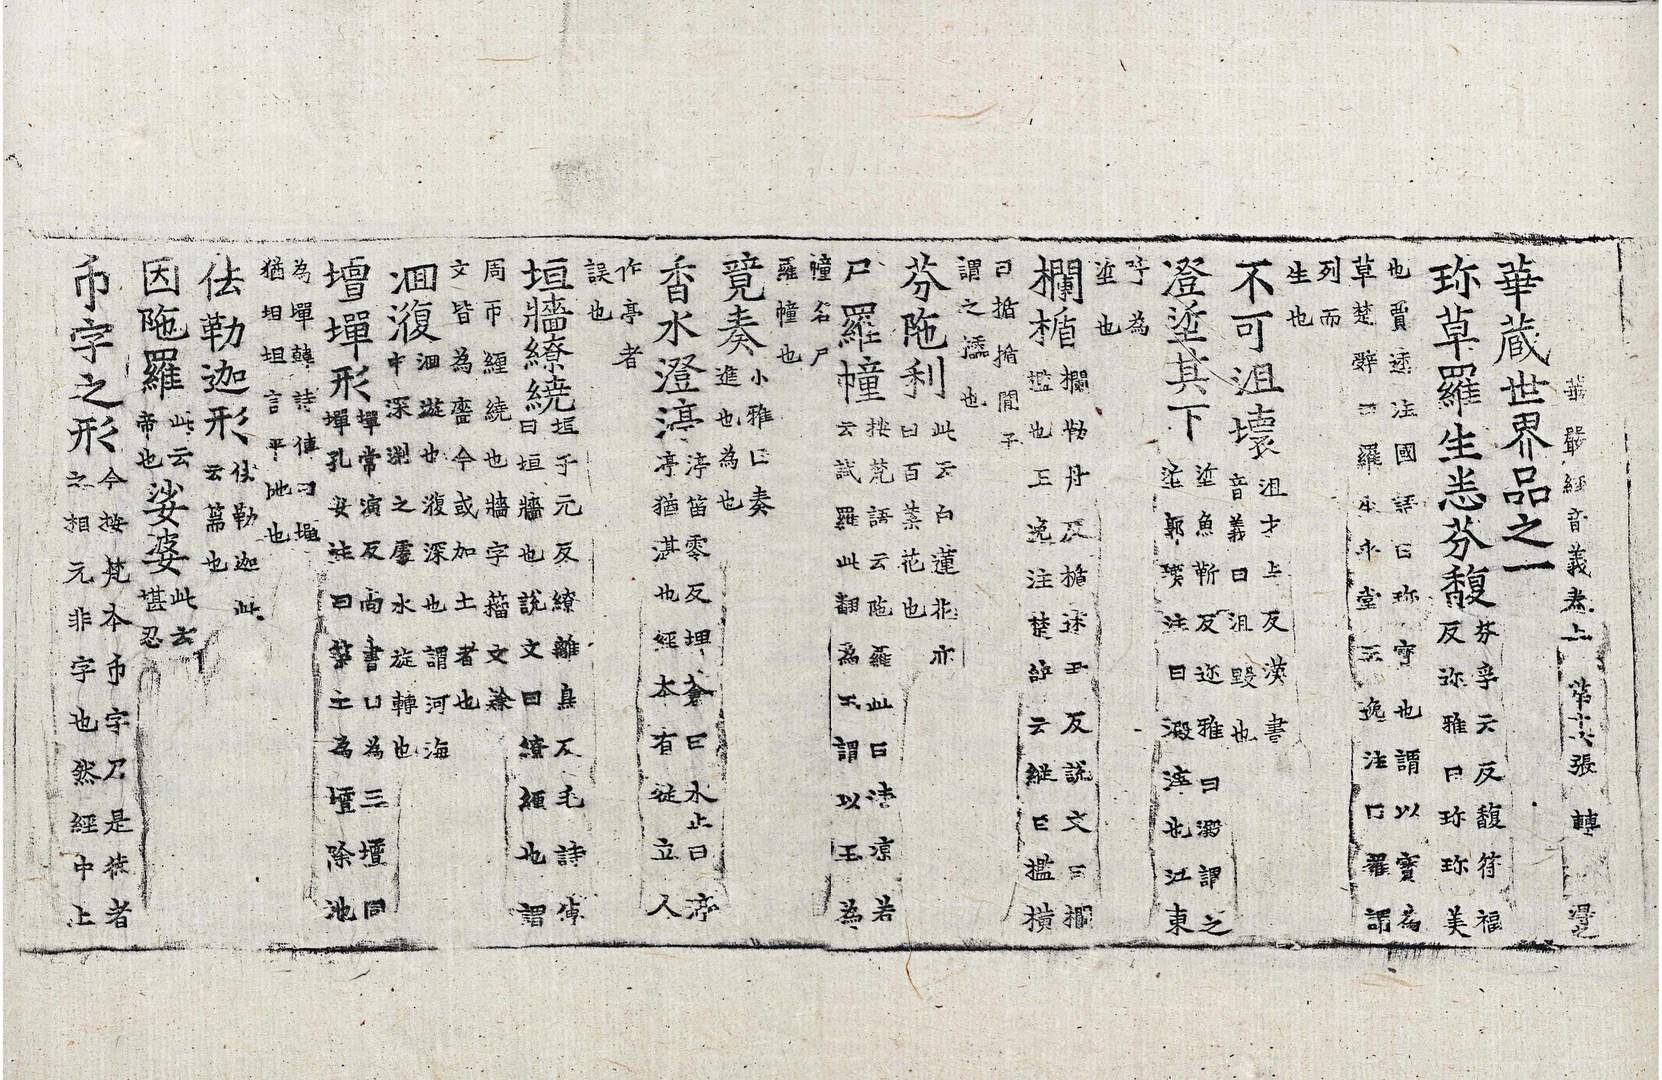 華嚴經音義卷上 第十六張 轉
華蔵世界品之一
珎草羅生恙芬馥芬孚云反馥符福
反迩雅曰珎珎美
也賈逵注國語曰珎寶也謂以寶為
草楚辞曰羅生乎堂王逸注曰羅謂
列而
生也
不可沮壞沮才与反漢書
音義曰沮毀也
澄垽其下垽魚靳反迩雅曰澱謂之
垽郭璞注曰澱滓也江東
呼為
垽也
欄楯欄勒丹反楯述尹反說文曰欄
檻也王逸注楚辞云縱曰檻橫
曰楯楯間子
謂之櫺也
芬陁利此云白蓮花亦
曰百葉花也
尸羅幢按梵語云陁羅此曰清凉若
云試羅此翻為玉謂以玉為
幢名尸
羅幢也
竟奏小雅曰奏
進也為也
香水澄渟渟笛零反埤蒼曰水止曰渟
渟猶湛也經本有從立人
作亭者
誤也
垣牆繚繞垣于元反繚離鳥反毛詩傳
曰垣牆也說文曰繚纏也謂
周帀經繞也牆字籀文兼
文皆為嗇今或加土者也
洄澓洄漩也澓深也謂河海
中深測之處水旋轉也
壇墠形墠常演反尚書曰為三壇同
墠孔安注曰築土為壇除地
為墠韓詩傳曰墠
猶坦坦言平地也
佉勒迦形佉勒迦此
云篅也
因陁羅此云
帝也娑婆此云
堪忍
帀字之形今按梵本帀字乃是往者
之相元非字也然經中上